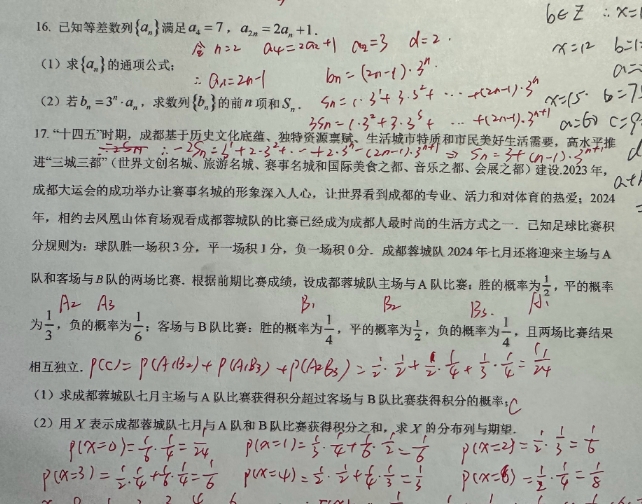 b∈Z ∴x=1
16. 已知等差数列{aₙ}满足a₄=7，a₂ₙ=2aₙ+1.
令n=2 a₄=2a₂+1 a₂=3 d=2.
x=12 b=1
（1）求{aₙ}的通项公式；
∴aₙ=2n-1 bₙ=(2n-1)·3ⁿ
（2）若bₙ=3ⁿ·aₙ，求数列{bₙ}的前n项和Sₙ.
Sₙ=1·3¹+3·3²+ ··· +(2n-1)·3ⁿ
x=15 b=7
3Sₙ=1·3²+3·3³+ ··· +(2n-1)·3ⁿ⁺¹
17. “十四五”时期，成都基于历史文化底蕴、独特资源禀赋、生活城市特质和市民美好生活需要，高水平推
∴-2Sₙ=3¹+2·3²+···+2·3ⁿ-(2n-1)·3ⁿ⁺¹ ⇒ Sₙ=3+(n-1)·3ⁿ⁺¹
进“三城三都”（世界文创名城、旅游名城、赛事名城和国际美食之都、音乐之都、会展之都）建设.2023年，
成都大运会的成功举办让赛事名城的形象深入人心，让世界看到成都的专业、活力和对体育的热爱；2024
年，相约去凤凰山体育场观看成都蓉城队的比赛已经成为成都人最时尚的生活方式之一．已知足球比赛积
分规则为：球队胜一场积3分，平一场积1分，负一场积0分．成都蓉城队2024年七月还将迎来主场与A
队和客场与B队的两场比赛．根据前期比赛成绩，设成都蓉城队主场与A队比赛：胜的概率为1/2，平的概率
A₂ A₃ B₁ B₂ B₃ A₁
为1/3，负的概率为1/6；客场与B队比赛：胜的概率为1/4，平的概率为1/2，负的概率为1/4，且两场比赛结果
相互独立．P(C)=P(A₁B₂)+P(A₁B₃)+P(A₂B₃)=1/2·1/2+1/2·1/4+1/3·1/4=11/24
（1）求成都蓉城队七月主场与A队比赛获得积分超过客场与B队比赛获得积分的概率；C
（2）用X表示成都蓉城队七月与A队和B队比赛获得积分之和，求X的分布列与期望．
P(X=0)=1/6·1/4=1/24 P(X=1)=1/3·1/4+1/6·1/2=1/6 P(X=2)=1/2·1/3=1/6
P(X=3)=1/2·1/4+1/6·1/4=1/6 P(X=4)=1/2·1/2+1/4·1/3=1/3 P(X=6)=1/2·1/4=1/8